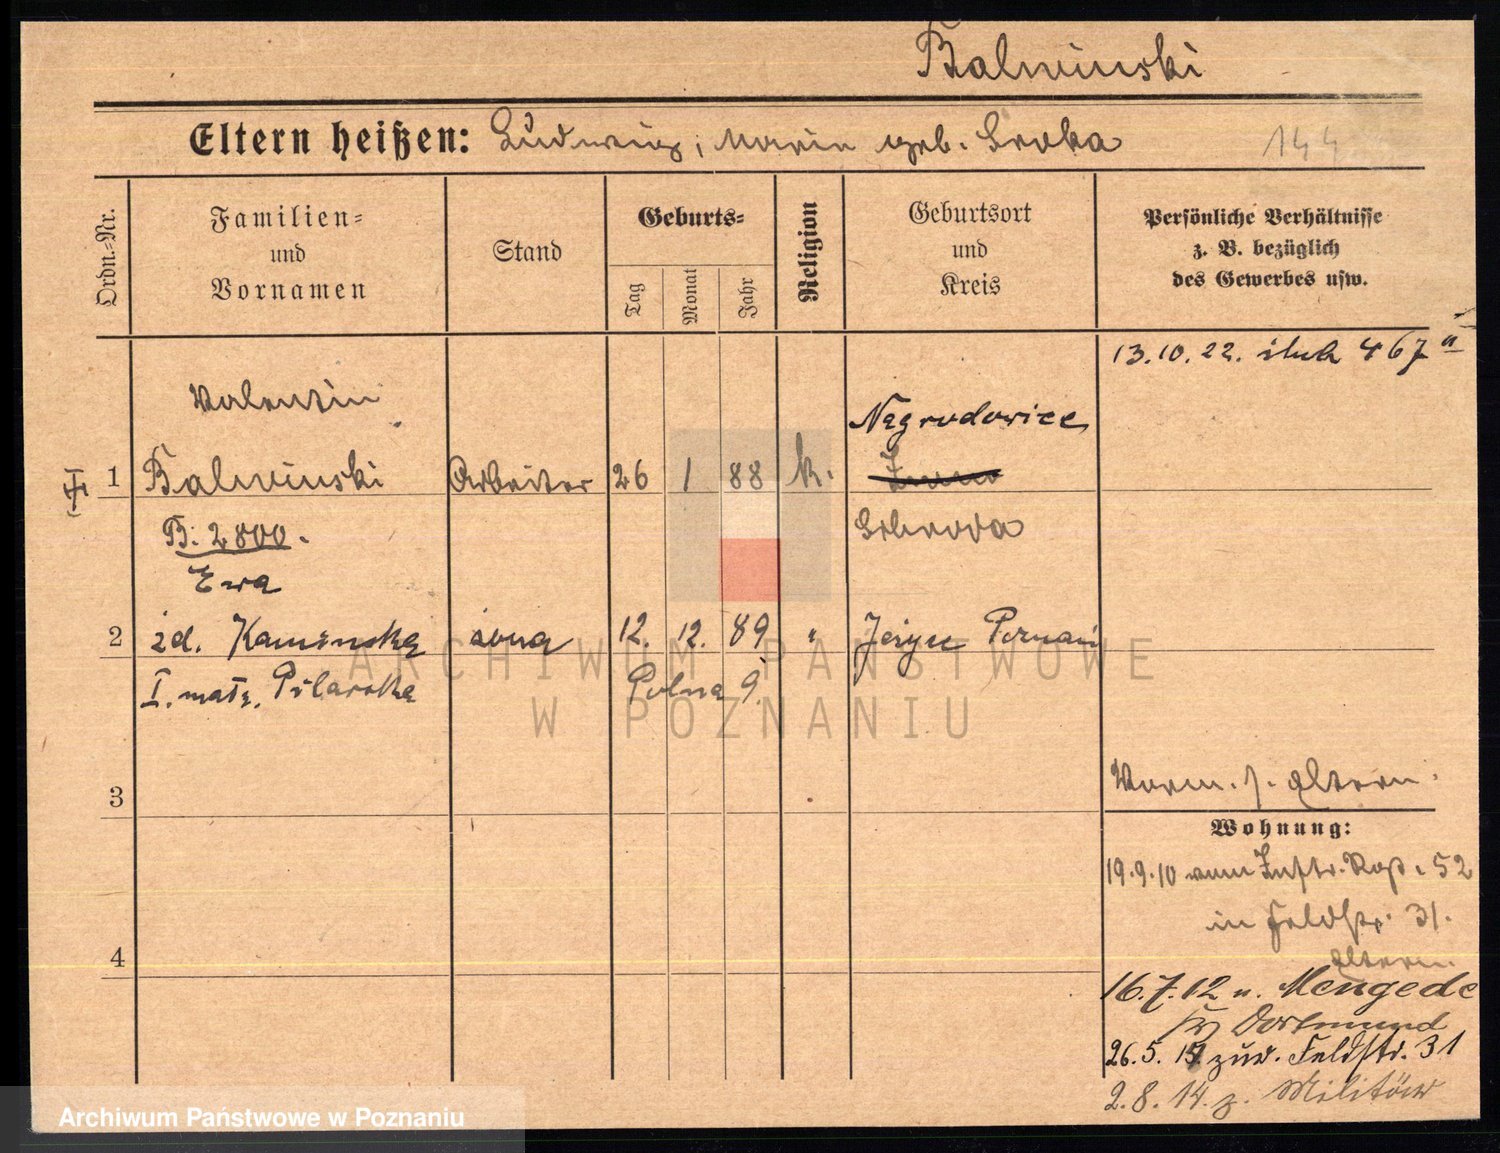 Balwinski
Eltern heißen: Ludwig, Marie geb. Sroka
144
Ordn.=Nr.
Familien=
und
Vornamen
Stand
Geburts=
Tag
Monat
Jahr
Religion
Geburtsort
und
Kreis
Persönliche Verhältnisse
z. B. bezüglich
des Gewerbes usw.
13.10.22. 467
Valentin
Nagrodowice
1 Balwinski Arbeiter 26 1 88 k.
B: 2800.
Schroda
Ewa
2 zd. Kaminska żona 12. 12. 89 " Jeżyce Poznań
I. małż. Pilarska Polna 9.
3
Eltern.
Wohnung:
19.9.10 vom 52
in Feldstr. 31.
Eltern.
4
16.7.12 n. Mengede
Dortmund
26.5. zur. Feldstr. 31
2.8.14. z. Militär
ARCHIWUM PAŃSTWOWE
W POZNANIU
Archiwum Państwowe w Poznaniu